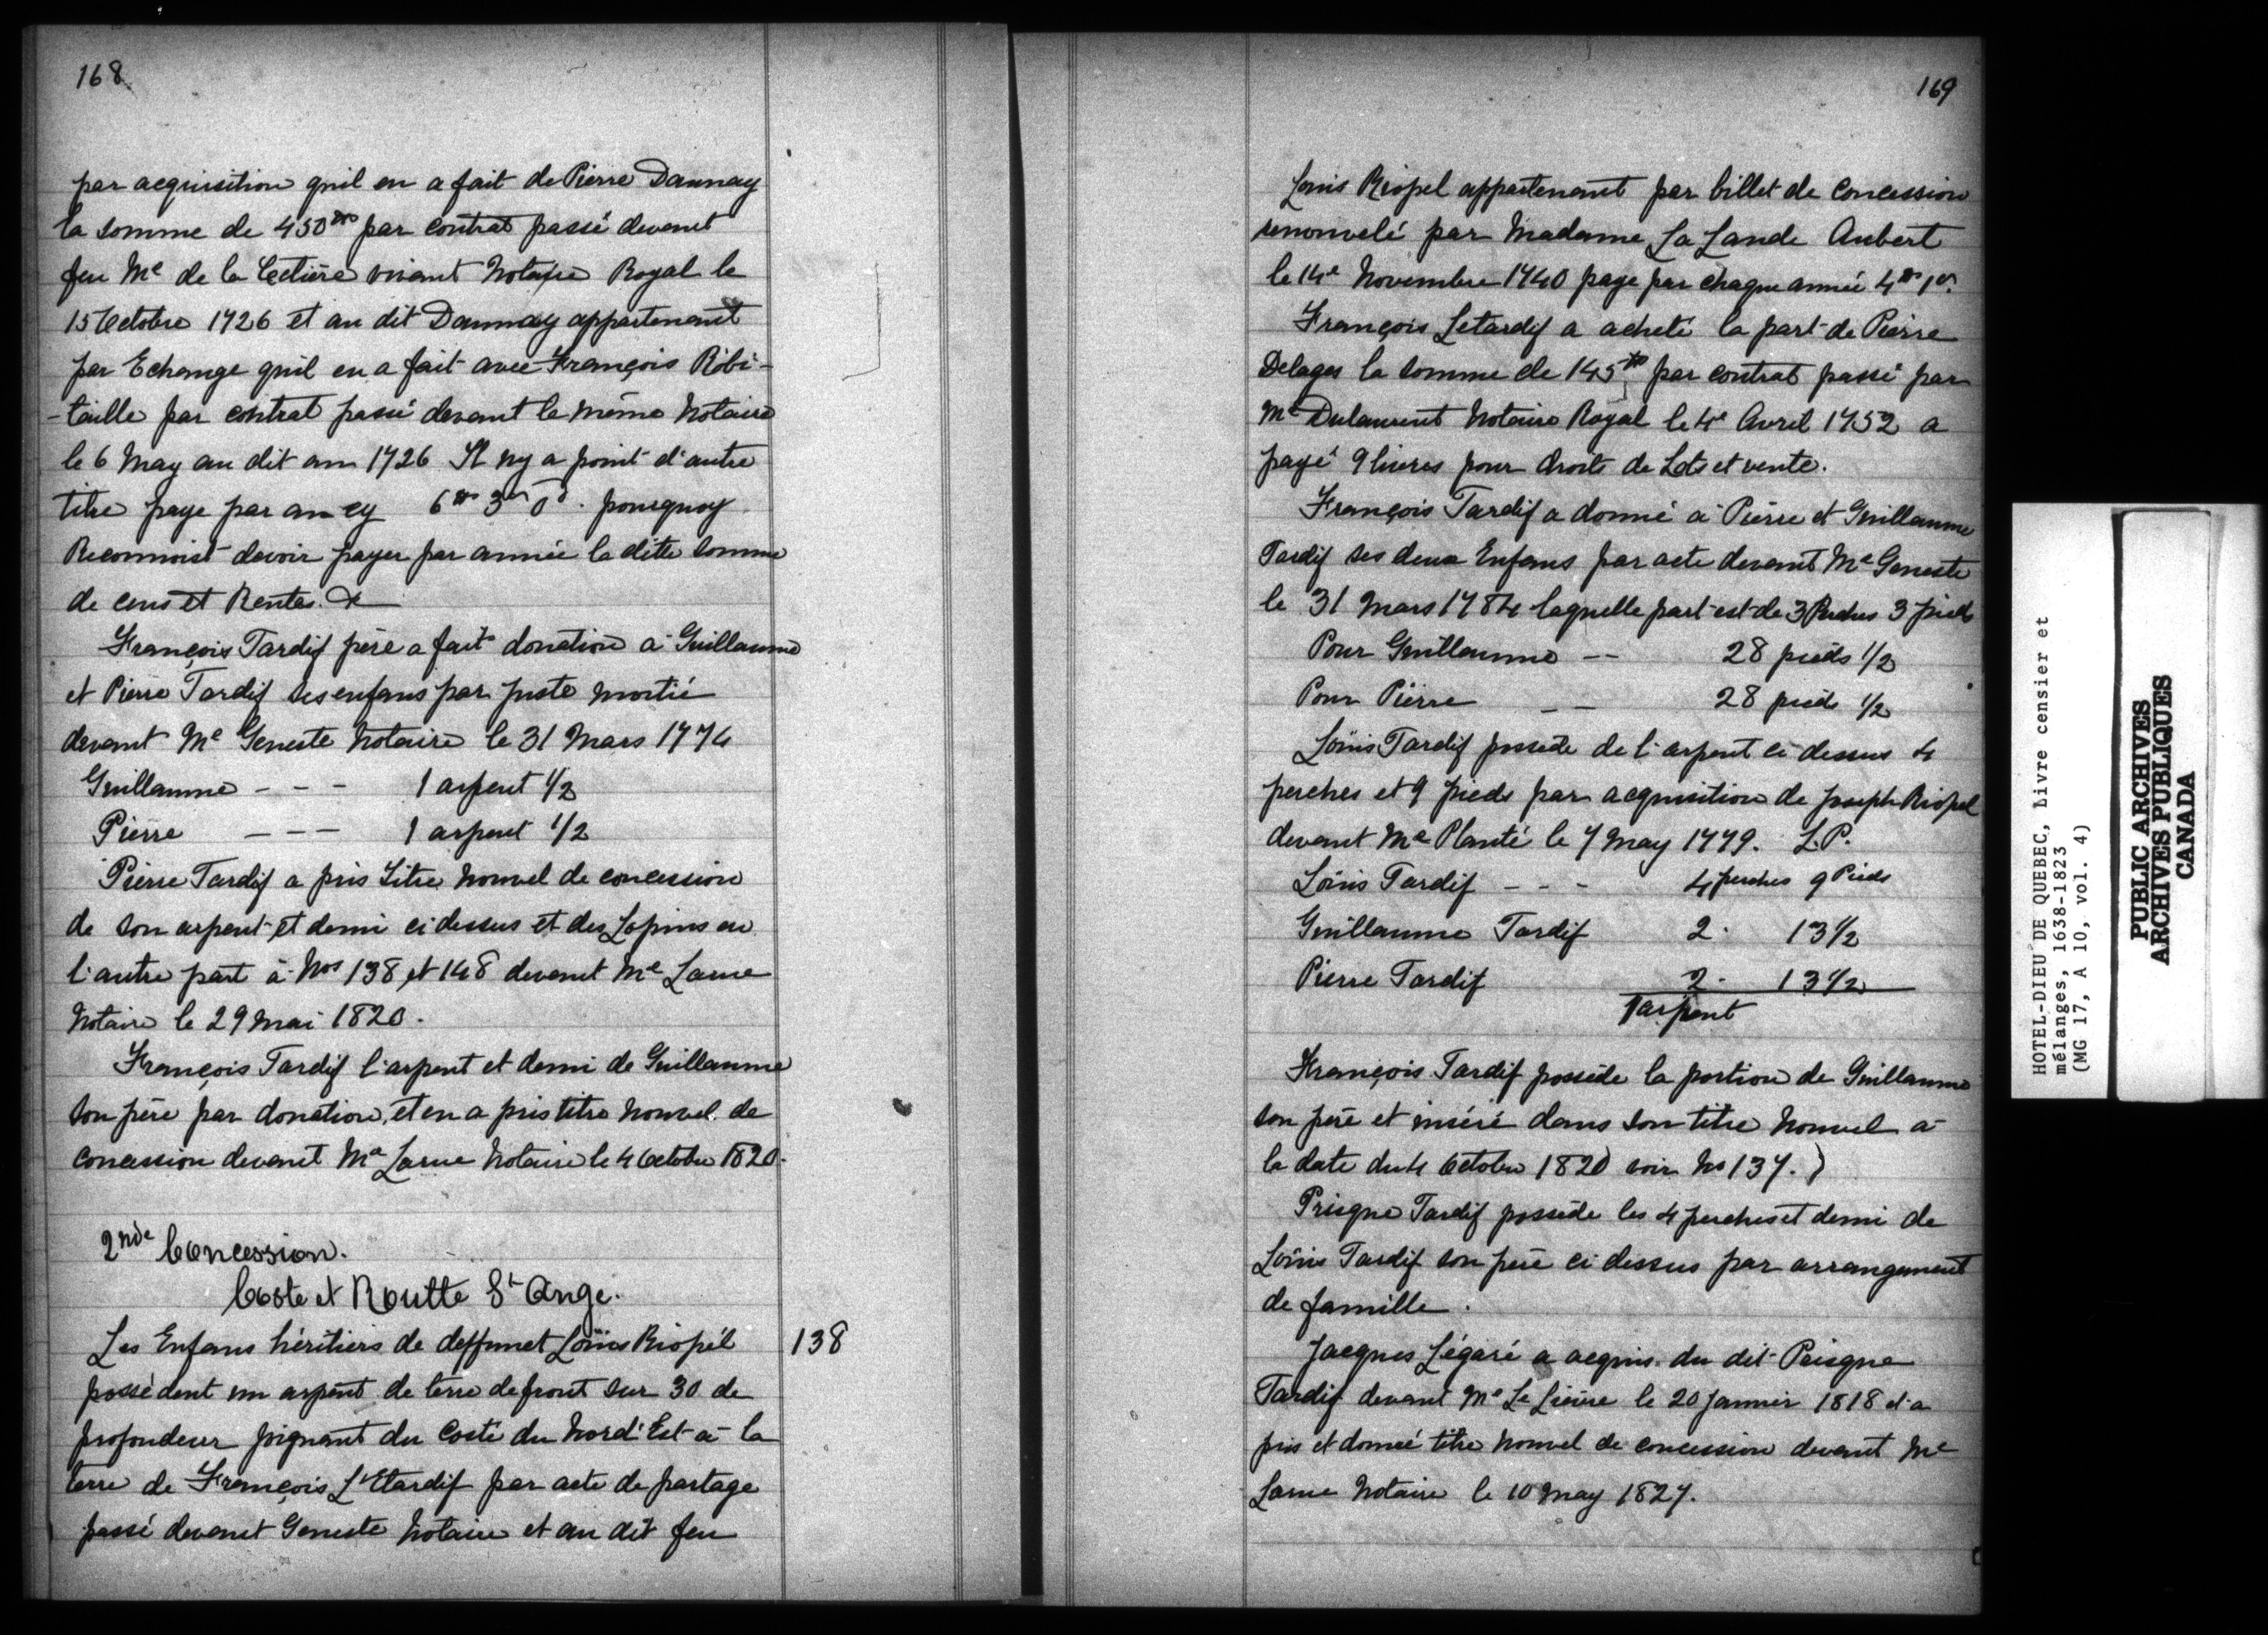 168
par acquisition quil en a fait de Pierre Daunay
la somme de 450ᵗᵗ par contrat passé devant
feu Mᵉ de la Cetière vivant Notaire Royal le
15 Octobre 1726 et au dit Daunay appartenant
par Echange quil en a fait avec François Robi-
-taille par contrat passé devant le même Notaire
le 6 May au dit an 1726 Il ny a point d'autre
titre paye par an cy 6ᵗᵗ 3ˢ 0ᵈ. pourquoy
Reconnoist devoir payer par année la ditte somme
de cens et Rentes. &
François Tardif père a fait donation à Guillaume
et Pierre Tardif ses enfans par juste moitié
devant Mᵉ Geneste Notaire le 31 Mars 1774
Guillaume - - - 1 arpent 1/2
Pierre - - - 1 arpent 1/2
Pierre Tardif a pris Titre nouvel de concession
de son arpent et demi ci dessus et des Lopins en
l'autre part à Nos 138 et 148 devant Mᵉ Larue
Notaire le 29 Mai 1820.
François Tardif l'arpent et demi de Guillaume
son père par donation, et en a pris titre Nouvel de
concession devant Mᵉ Larue Notaire le 4 Octobre 1820.
2nde Concession.
Coste et Routte St Ange.
Les Enfans héritiers de deffunct Loüis Riopél 138
possèdent un arpent de terre de front sur 30 de
profondeur joignant du Costé du Nord Est à la
terre de François L'Etardif par acte de partage
passé devant Geneste Notaire et au dit feu
169
Louis Riopel appartenant par billet de Concession
renouvelé par Madame La Lande Aubert
le 14ᵉ Novembre 1740 paye par chaque année 4ᵗᵗ 1ˢ.
François Letardif a acheté la part de Pierre
Delages la somme de 145ᵗᵗ par contrat passé par
Mᵉ Dulaurent Notaire Royal le 4ᵉ Avril 1752 a
payé 9 livres pour droits de Lots et vente.
François Tardif a donné à Pierre et Guillaume
Tardif ses deux Enfans par acte devant Mᵉ Geneste
le 31 Mars 1784 laquelle part est de 3 Perches 3 pieds
Pour Guillaume -- 28 pieds 1/2
Pour Pierre -- 28 pieds 1/2
Loüis Tardif possède de l'arpent ci dessus 4
perches et 9 pieds par acquisition de Joseph Riopel
devant Mᵉ Planté le 7 May 1779. L.P.
Loüis Tardif - - - 4 perches 9 Pieds
Guillaume Tardif 2. 13 1/2
Pierre Tardif 2. 13 1/2
1 arpent
François Tardif possède la portion de Guillaume
son père et inséré dans son titre Nouvel à
la date du 4 Octobre 1820 voir No 137. )
Prisque Tardif possède les 4 perches et demi de
Loüis Tardif son père ci dessus par arrangement
de famille.
Jacques Légaré a acquis du dit Prisque
Tardif devant Mᵉ Le Lièvre le 20 Janvier 1818 et a
pris et donné titre nouvel de concession devant Mᵉ
Larue Notaire le 10 May 1827.
HOTEL-DIEU DE QUEBEC, Livre censier et
mélanges, 1638-1823
(MG 17, A 10, vol. 4)
PUBLIC ARCHIVES
ARCHIVES PUBLIQUES
CANADA